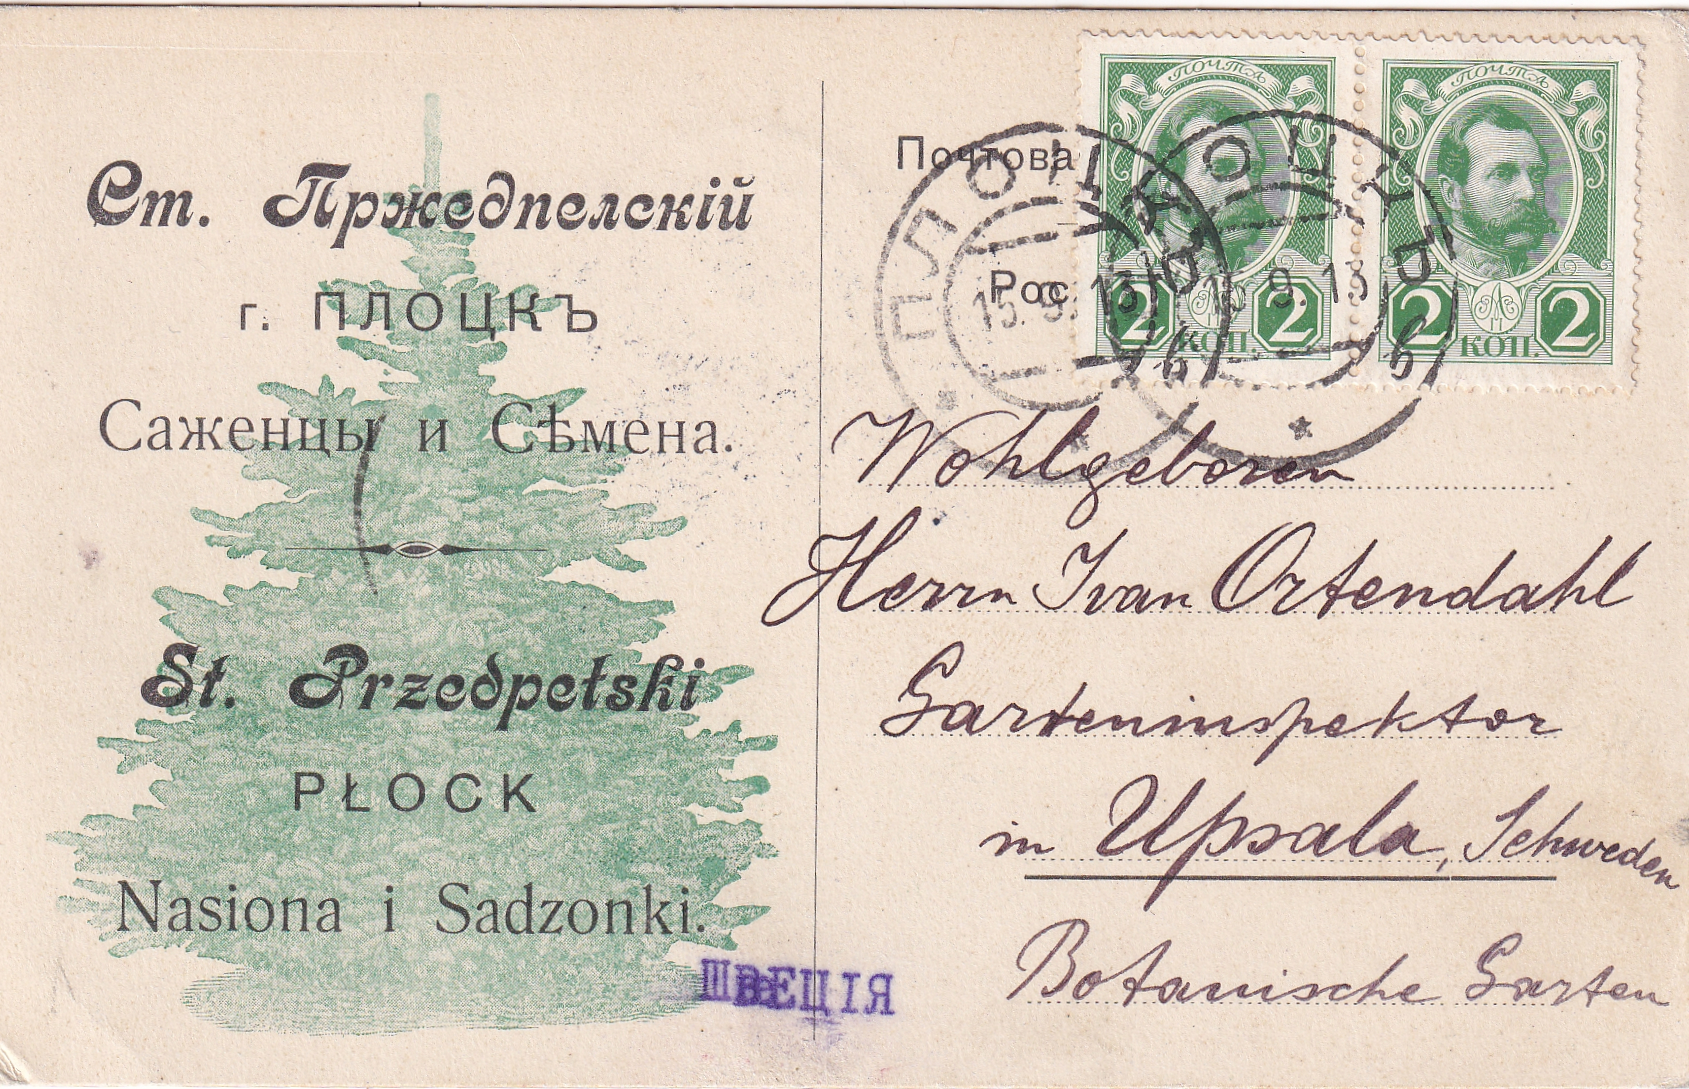 Ст. Пржедпелскій
г. ПЛОЦКЪ
Саженцы и Сѣмена.
St. Przedpełski
PŁOCK
Nasiona i Sadzonki.
ШВЕЦІЯ
Почтова
Рос
ПОЧТА
2 КОП. 2
ПОЧТА
2 КОП. 2
ПЛОЦКЪ
15.9.13
б
ПЛОЦКЪ
15.9.13
б
Wohlgeboren
Herrn Ivan Ortendahl
Garteninspektor
in Upsala, Schweden
Botanische Garten